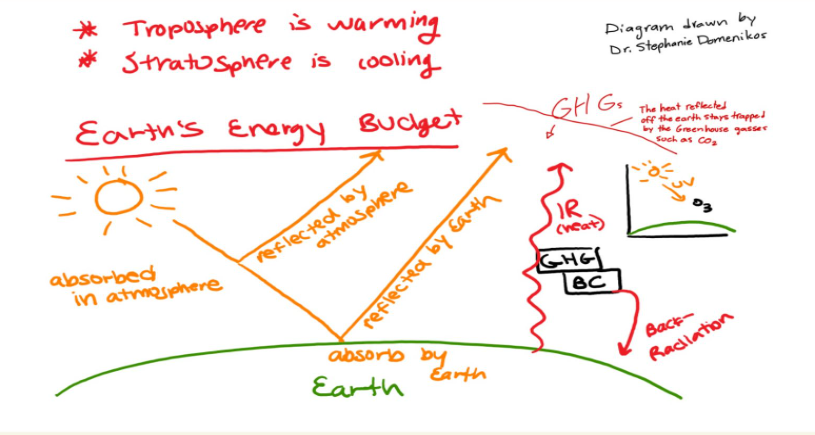 * Troposphere is warming
* Stratosphere is cooling
Diagram drawn by
Dr. Stephanie Domenikos
Earth's Energy Budget
GHGs
The heat reflected
off the earth stays trapped
by the Greenhouse gasses
such as CO2
reflected by
atmosphere
reflected by Earth
absorbed
in atmosphere
IR
(heat)
GHG
BC
UV
O3
Back-
Radiation
absorb by
Earth
Earth